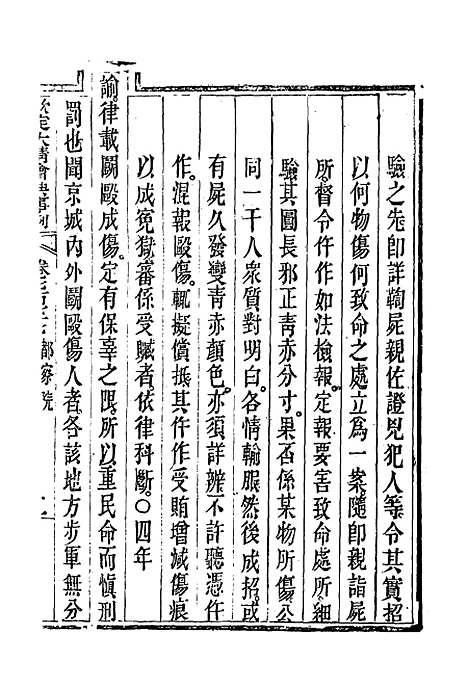 驗之先卽詳鞫屍親佐證兇犯人等令其實招
以何物傷何致命之處立爲一案隨卽親詣屍
所督令仵作如法檢報定報要害致命處所細
驗其圓長邪正靑赤分寸果否係某物所傷公
同一干人衆質對明白各情輸服然後成招或
有屍久發變靑赤顏色亦須詳辨不許聽憑仵
作混報毆傷輒擬償抵其仵作受賄增減傷痕
以成冤獄審係受贓者依律科斷〇四年
諭律載鬭毆成傷定有保辜之限所以重民命而愼刑
罰也聞京城內外鬭毆傷人者各該地方步軍無分
欽定大淸會典事例
都察院